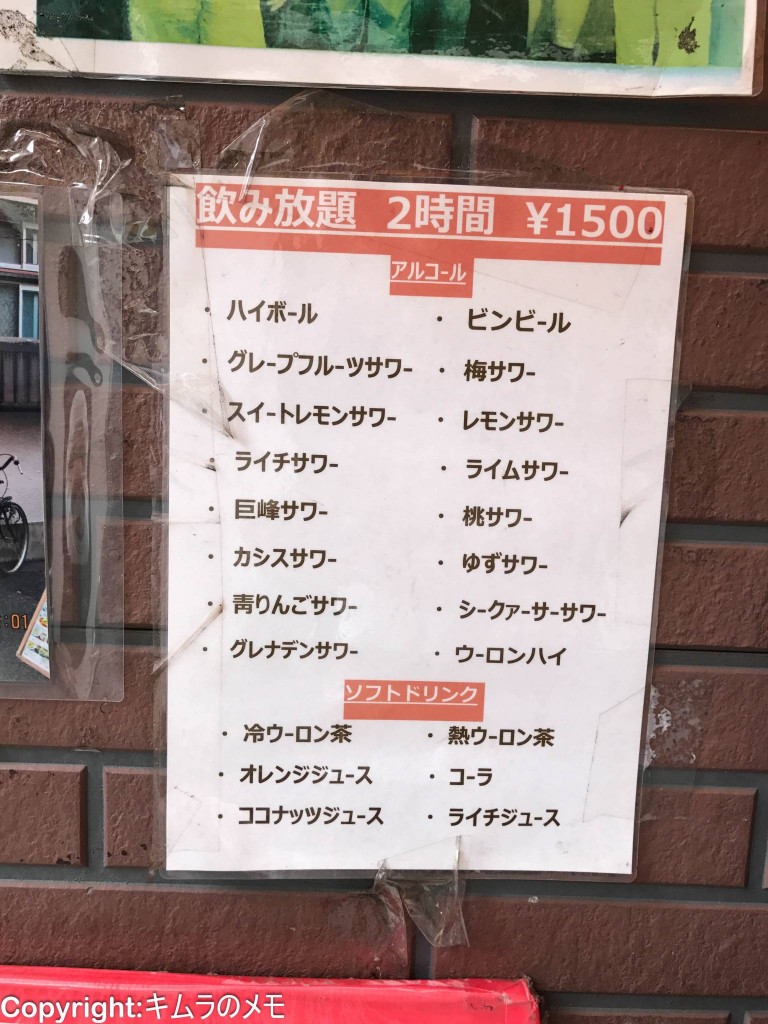 飲み放題 2時間 ¥1500
アルコール
・ハイボール ・ビンビール
・グレープフルーツサワー ・梅サワー
・スイートレモンサワー ・レモンサワー
・ライチサワー ・ライムサワー
・巨峰サワー ・桃サワー
・カシスサワー ・ゆずサワー
・青りんごサワー ・シークァーサーサワー
・グレナデンサワー ・ウーロンハイ
ソフトドリンク
・冷ウーロン茶 ・熱ウーロン茶
・オレンジジュース ・コーラ
・ココナッツジュース ・ライチジュース
:01
Copyright:キムラのメモ